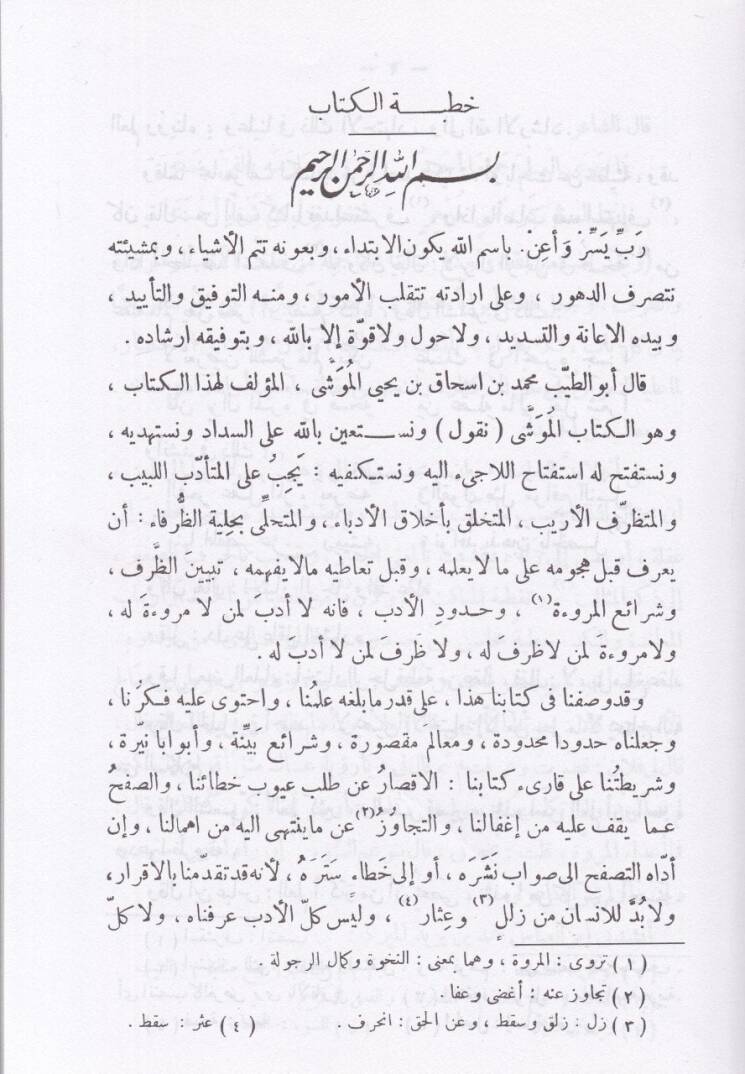 خطبة الكتاب
بسم الله الرحمن الرحيم
رَبِّ يَسِّرْ وَأعِنْ. باسم الله يكون الابتداء ، وبعونه تتم الأشياء ، وبمشيئته
تتصرف الدهور ، وعلى ارادته تتقلب الأمور ، ومنه التوفيق والتأييد ،
وبيده الاعانة والتسديد ، ولاحول ولاقوّة إلا بالله ، وبتوفيقه ارشاده .
قال أبو الطيّب محمد بن اسحاق بن يحيى المُوَشَّى ، المؤلف لهذا الكتاب ،
وهو الكتاب المُوَشَّى ( نقول ) ونستعين بالله على السداد ونستهديه ،
ونستفتح له استفتاح اللاجىء اليه ونستكفيه : يَجِبُ على المتأدّب اللبيب ،
والمتظرّف الأريب ، المتخلق بأخلاق الأدباء ، والمتحلّى بحلية الظُّرفاء : أن
يعرف قبل هجومه على ما لايعلمه ، وقبل تعاطيه مالايفهمه ، تبيينَ الظَّرف ،
وشرائع المروءة (١) ، وحدودِ الأدب ، فانه لا أدب لمن لا مروءة له ،
ولامروءة لمن لاظرف له ، ولا ظرفَ لمن لا أدب له .
وقدوصفنا فى كتابنا هذا ، على قدر مابلغه علمُنا ، واحتوى عليه فكرُنا ،
وجعلناه حدودا محدودة ، ومعالمَ مقصورة ، وشرائع بيِّنه ، وأبوابا نيّرة ،
وشريطتُنا على قارىء كتابنا : الاقصارُ عن طلب عيوب خطائنا ، والصفحُ
عما يقف عليه من إغفالنا ، والتجاوُزُ (٢) عن ماينتهى اليه من اهمالنا ، وإن
أدّاه التصفح الى صواب نَشَرَه ، أو إلى خَطاءٍ سَتَرَهُ ، لأنه قد تقدّمنا بالاقرار ،
ولابُدَّ للانسان من زللٍ (٣) وعِثار (٤) ، وليس كلّ الأدب عرفناه ، ولا كلّ
( ١ ) تروى : المروة ، وهما بمعنى : النخوة وكمال الرجولة .
( ٢ ) تجاوز عنه : أغضى وعفا .
( ٣ ) زل : زلق وسقط ، وعن الحق : انحرف . ( ٤ ) عثر : سقط .